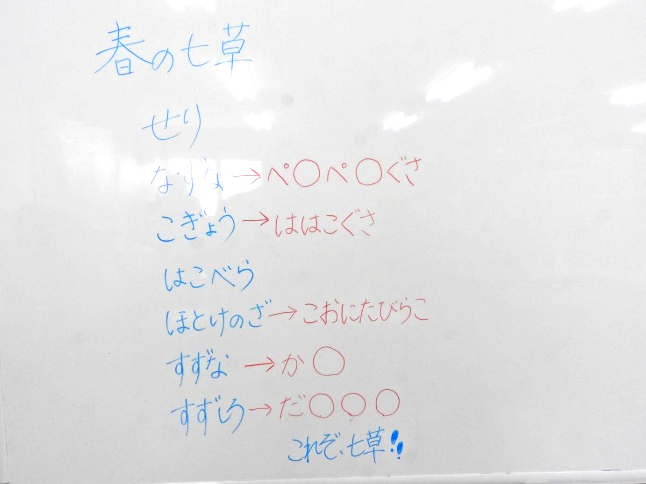 春の七草
せり
なずな→ペ〇ペ〇ぐさ
ごぎょう→ははこぐさ
はこべら
ほとけのざ→こおにたびらこ
すずな→か〇
すずしろ→だ〇〇〇
これぞ、七草!!